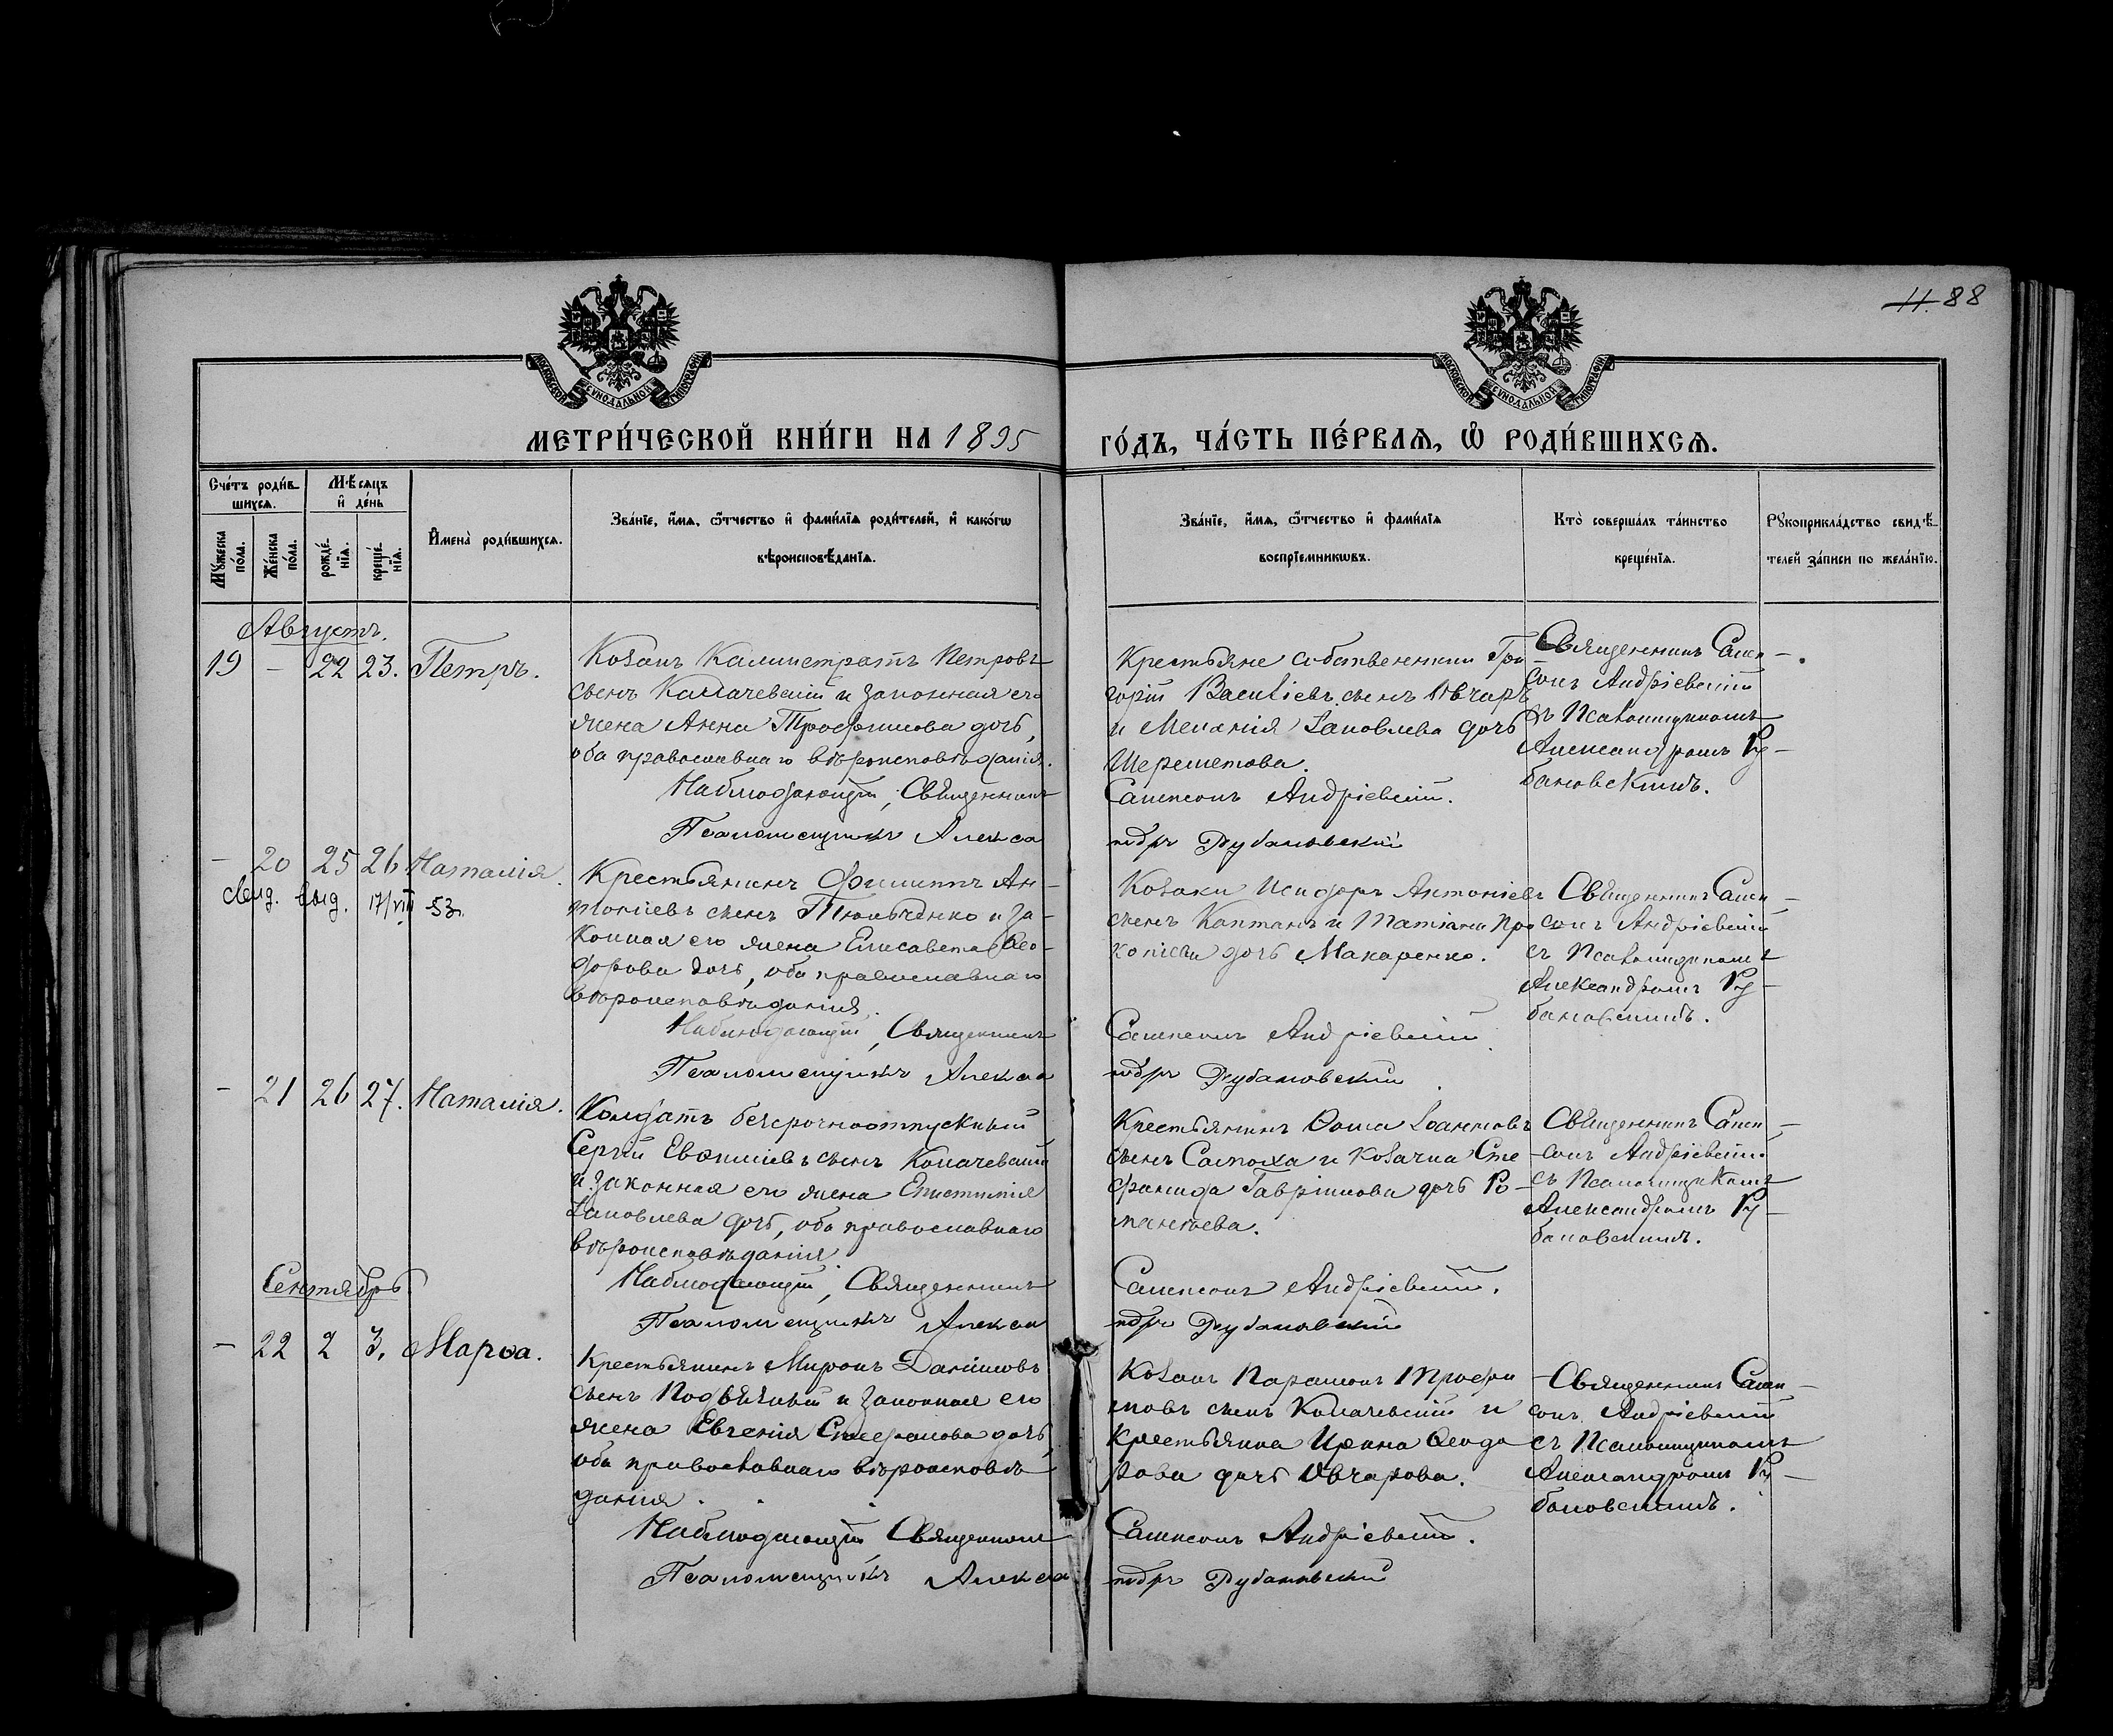 11. 88
МОСКОВСКОЙ СѴНОДАЛЬНОЙ ТИПОГРАФІИ
МОСКОВСКОЙ СѴНОДАЛЬНОЙ ТИПОГРАФІИ
МЕТРИ́ЧЕСКОЙ КНИ́ГИ НА 1895
ГО́ДЪ, ЧА́СТЬ ПЕ́РВАЯ, Ѡ РОДИ́ВШИХСЯ.
Сче́тъ роди́в-
шихся.
Мѣсяцъ
и҆ де́нь
Мꙋжеска
по́ла.
Же́нска
по́ла.
рожде́-
нїя.
креще́-
нїя.
И҆мена̀ роди́вшихся.
Зва́нїе, и҆́мя, ѻ҆́тчество и҆ фами́лїя роди́телей, и҆ како́гѡ
вѣроисповѣ́данїя.
Зва́нїе, и҆́мя, ѻ҆́тчество и҆ фами́лїя
воспрїе́мникѡвъ.
Кто̀ соверша́лъ та́инство
креще́нїя.
Рꙋкоприкла́дство свидѣ́-
телей за́писи по жела́нїю.
Августъ.
19 — 22 23. Петръ.
Козакъ Каллистратъ Петровъ
сынъ Колачевскій и законная его
жена Анна Трофимова дочь,
оба православнаго вѣроисповѣданія.
Наблюдающій, Священникъ
Псаломщикъ Алекса
Крестьяне собственники Гри
горій Василіевъ сынъ Овчаръ
и Меланія Іаковлева дочь
Шереметова.
Сампсонъ Андріевскій.
ндръ Рубановскій
Священникъ Самп-
сонъ Андріевскій
съ Псаломщикомъ
Александромъ Ру-
бановскимъ.
— 20 25 26 Наталія.
свид. выд. 17/VIII 53.
Крестьянинъ Филиппъ Ан-
тоніевъ сынъ и за-
конная его жена Елисавета Ѳео-
дорова дочь, оба православнаго
вѣроисповѣданія.
Наблюдающій, Священникъ
Псаломщикъ Алекса
Козаки Исидоръ Антоніевъ
сынъ Каптанъ и Татіана Про
копіева дочь Макаренко.
Сампсонъ Андріевскій
ндръ Рубановскій
Священникъ Самп-
сонъ Андріевскій
съ Псаломщикомъ
Александромъ Ру-
бановскимъ.
— 21 26 27. Наталія.
Солдатъ безсрочноотпускный
Сергій Евѳиміевъ сынъ Колачевскій
и законная его жена Епистимія
Іаковлева дочь, оба православнаго
вѣроисповѣданія.
Наблюдающій, Священникъ
Псаломщикъ Алекса
Крестьянинъ Ѳома Іоанновъ
сынъ и козачка Сте
фанида Гавріилова дочь Ро-
маньева.
Сампсонъ Андріевскій.
ндръ Рубановскій
Священникъ Самп-
сонъ Андріевскій
съ Псаломщикомъ
Александромъ Ру-
бановскимъ.
Сентябрь.
— 22 2 3. Марѳа.
Крестьянинъ Миронъ Даніиловъ
сынъ Подвязный и законная его
жена Евгенія Стефанова дочь,
оба православнаго вѣроисповѣ-
данія.
Наблюдающій Священникъ
Псаломщикъ Алекса
Козакъ Парамонъ Трофи
мовъ сынъ Колачевскій и
крестьянка Ирина Ѳеодо
рова дочь Овчарова.
Сампсонъ Андріевскій.
ндръ Рубановскій
Священникъ Самп-
сонъ Андріевскій
съ Псаломщикомъ
Александромъ Ру-
бановскимъ.